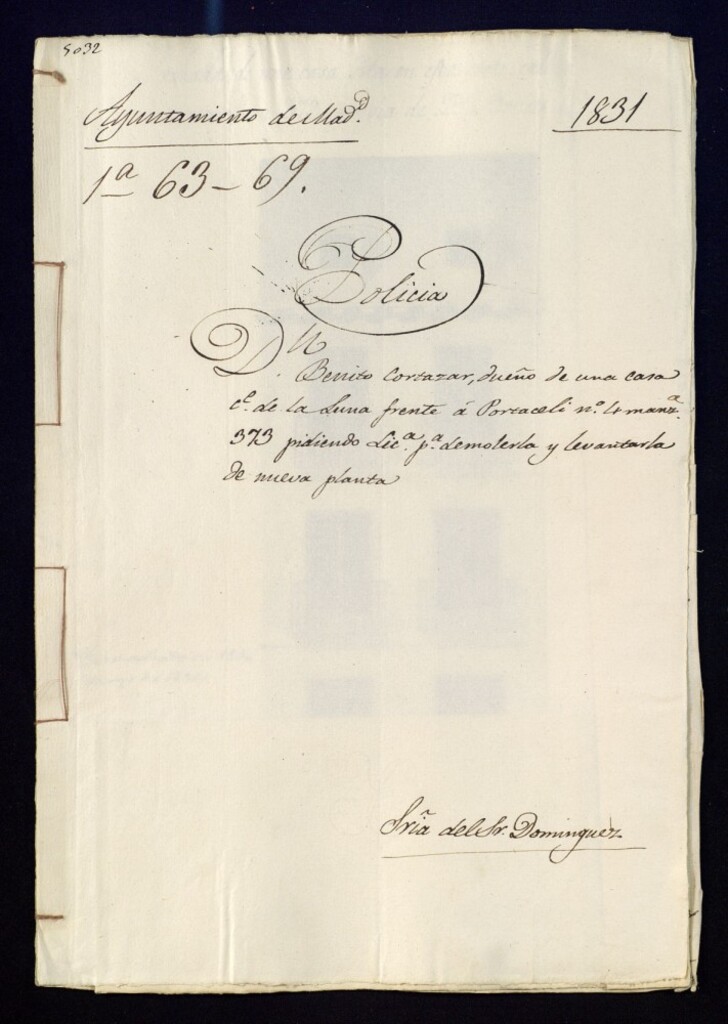 5032
Ayuntamiento de Mad.d
1831
1a 63 – 69.
Policia
D.n Benito Cortazar, dueño de una casa
c.e de la Luna frente á Portaceli n.o 4 manz.a
373 pidiendo Lic.a p.a demolerla y levantarla
de nueva planta
Sria del Sr. Dominguez